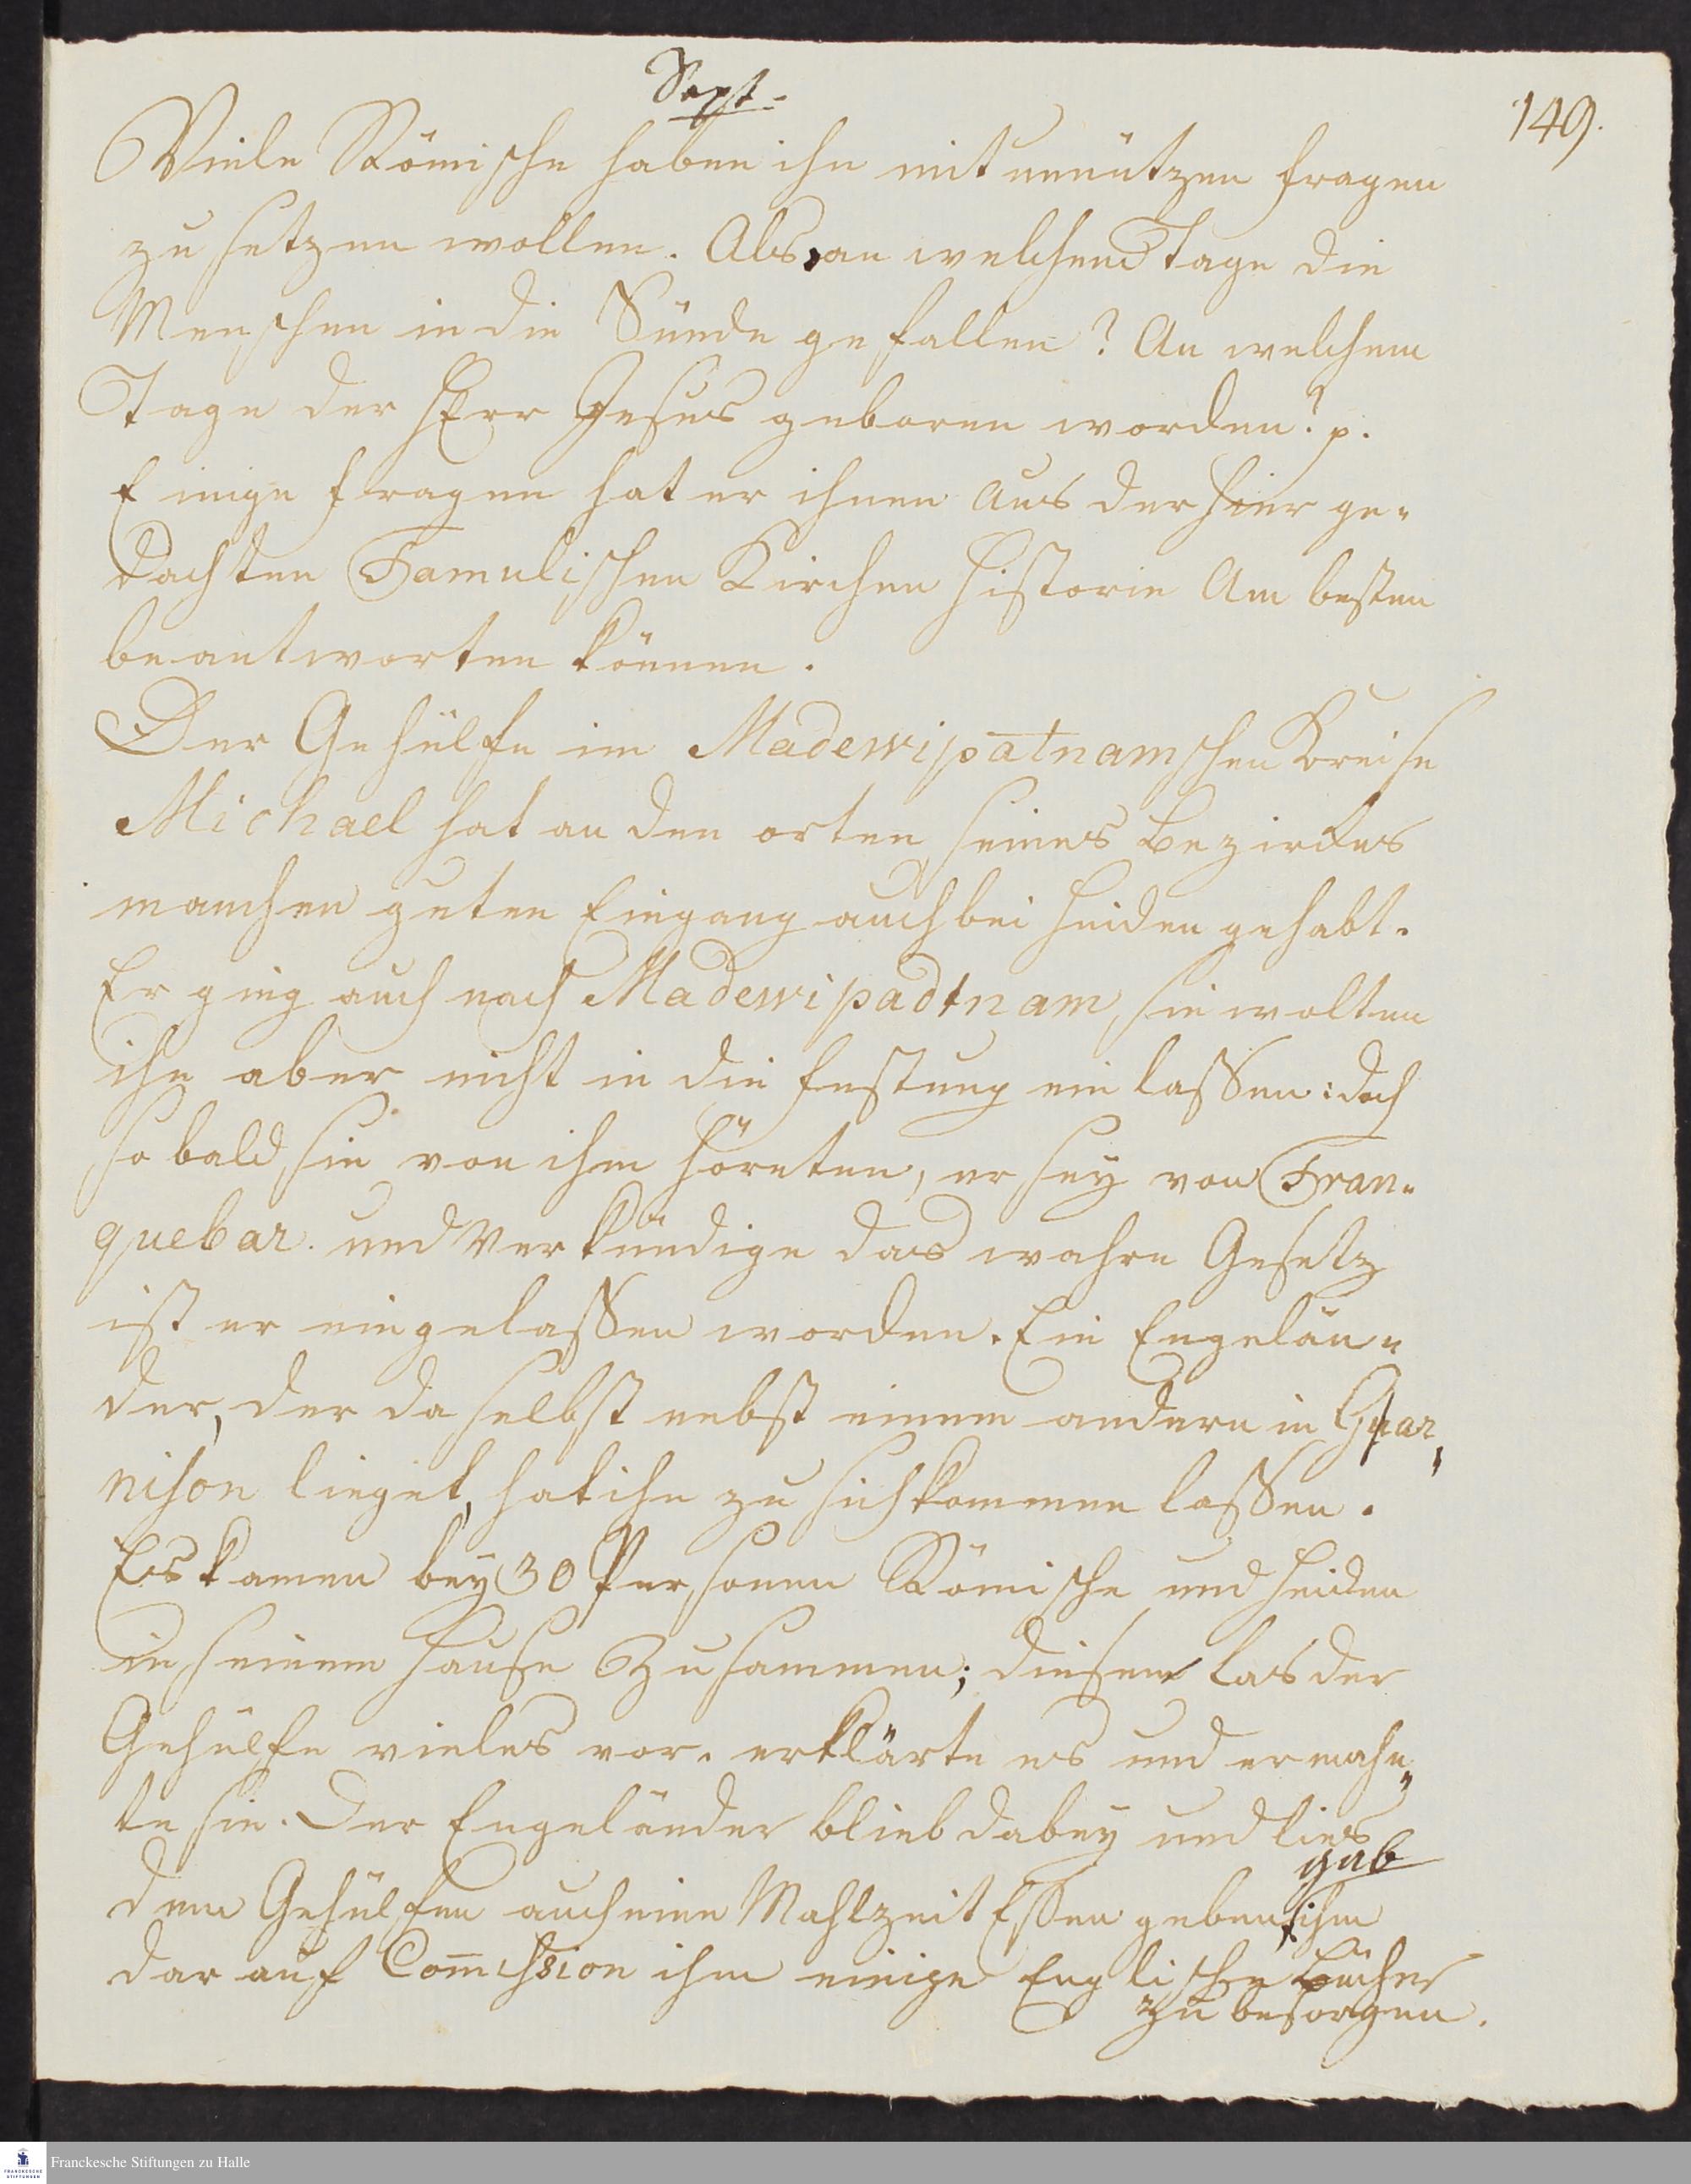 Sept.
149.
Viele Römische haben ihn mit unnützen fragen
zu setzen wollen. Als, an welchem Tage die
Menschen in die Sünde gefallen? An welchem
Tage der HErr Jesus geboren worden? p.
Einige fragen hat er ihnen aus der hier ge-
dachten Tamulischen Kirchen Historie Am besten
beantworten können.
Der Gehülfe im Madewipatnamschen Kreise
Michael hat an den orten seines Bezirkes
manchen guten Eingang auch bei Heiden gehabt.
Er ging auch nach Madewipadtnam, sie wolten
ihn aber nicht in die festung ein lassen: doch
so bald sie von ihm höreten, er sey von Tran-
quebar. und verkündige das wahre Gesetz
ist er eingelassen worden. Ein Engelän-
der, der da selbst nebst einem andern in Guar-
nison lieget, hat ihn zu sich kommen lassen.
Es kamen bey 30 Personen Römische und Heiden
in seinem Hause Zusammen; diesen las der
Gehülfe vieles vor. erklärte es und ermahn-
te sie. Der Engeländer blieb dabey und lies
gab
dem Gehülfen auch eine Mahlzeit Essen geben, ihm
dar auf Com̅ission ihm einige Englische Bücher
zu besorgen.
Franckesche Stiftungen zu Halle
FRANCKESCHE
STIFTUNGEN